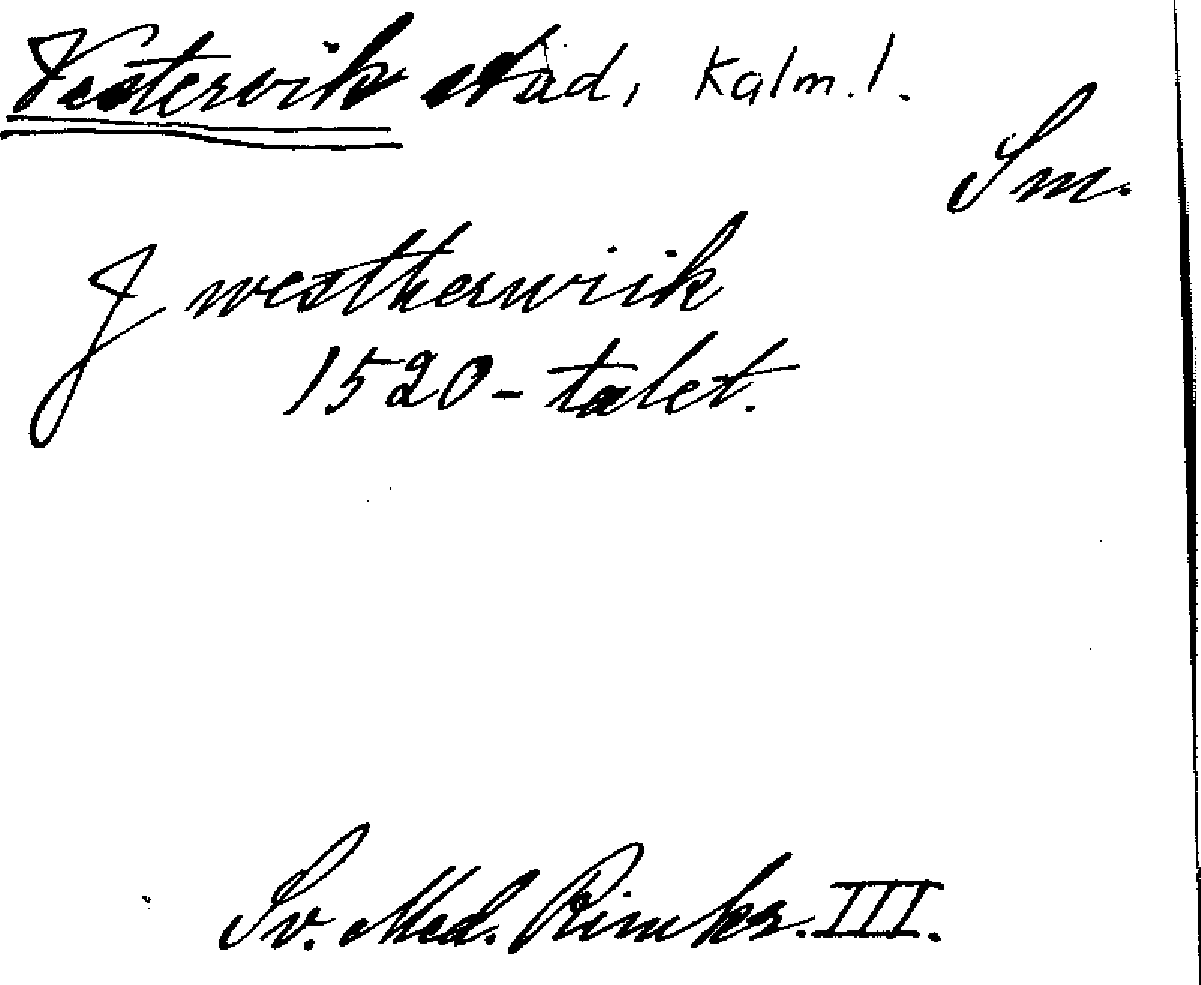 Vestervik stad, Kalm. l.
Sm.
J westherwiik
1520-talet.
Sv. Med. Rimkr. III.